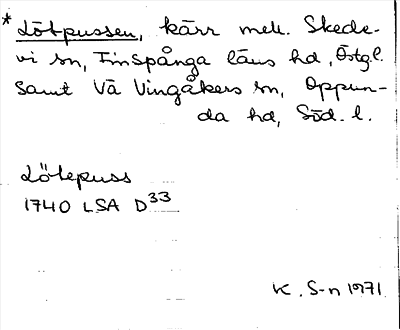 * Lötpussen, kärr mell. Skede-
vi sn, Finspånga läns hd, Östg. l.
samt Vä Vingåkers sn, Oppun-
da hd, Söd. l.
Lötepuss
1740 LSA D33
K. S-n 1971